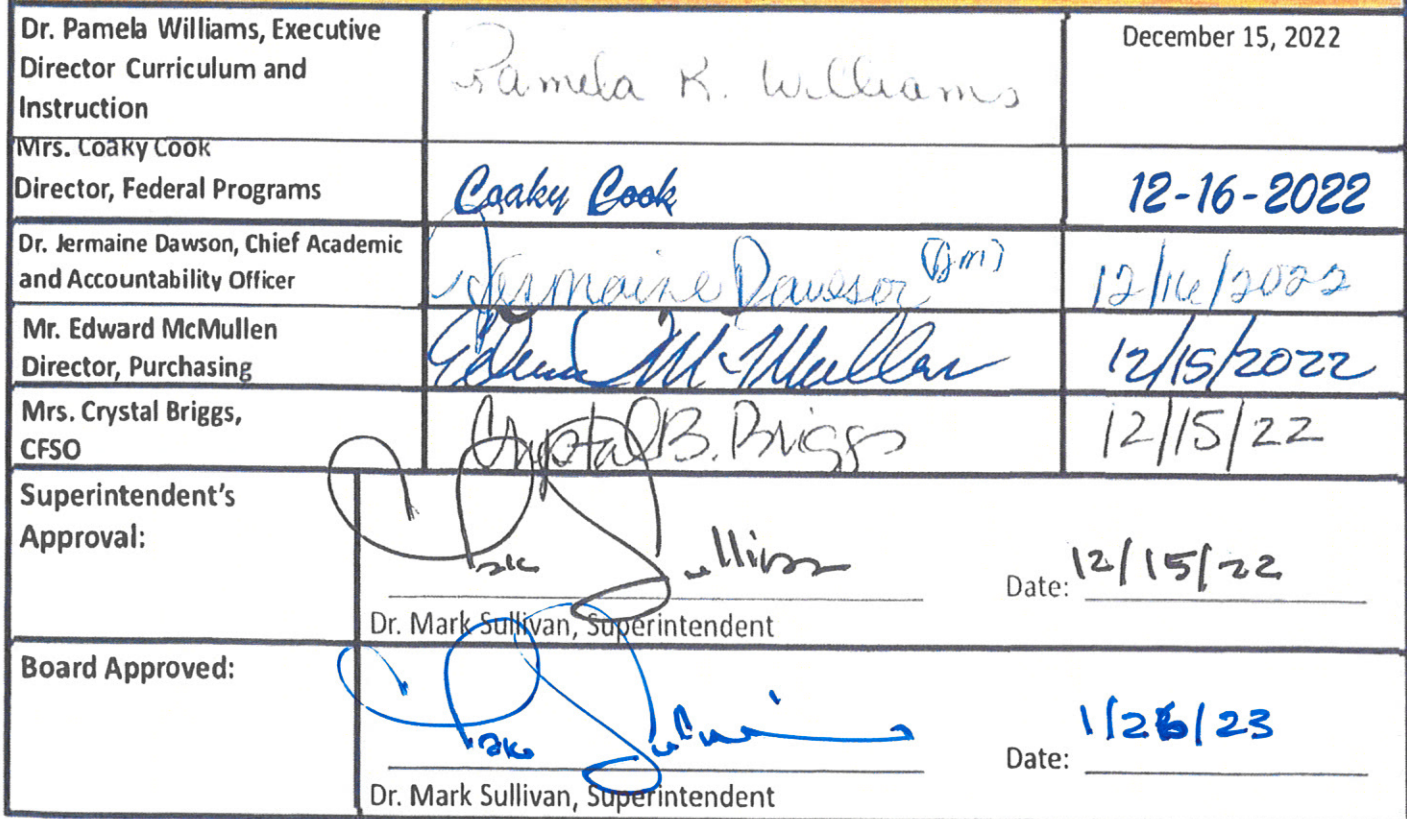 Dr. Pamela Williams, Executive
Director Curriculum and
Instruction
Pamela K. Williams
December 15, 2022
Mrs. Coaky Cook
Director, Federal Programs
Coaky Cook
12-16-2022
Dr. Jermaine Dawson, Chief Academic
and Accountability Officer
Jermaine Dawson
12/16/2022
Mr. Edward McMullen
Director, Purchasing
Edward McMullen
12/15/2022
Mrs. Crystal Briggs,
CFSO
Crystal B. Briggs
12/15/22
Superintendent's
Approval:
Mark Sullivan
Date: 12/15/22
Dr. Mark Sullivan, Superintendent
Board Approved:
Mark Sullivan
Date:
Dr. Mark Sullivan, Superintendent